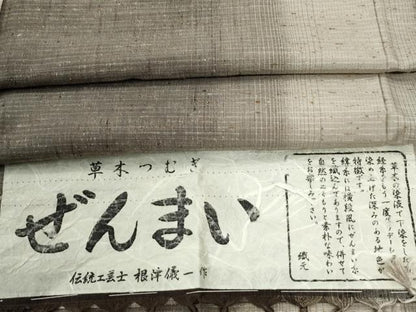 草木つむぎ
ぜんまい
伝統工芸士 根津儀一 作
草木の後液で一染をした
経糸をもう一度
染め上げた深みのある地色が
特徴です。
緯糸には横段風にぜんまい糸
を織込んでありますので、併せて
自然のおもむきと素朴な味わい
をお楽しみ下さい。
織元